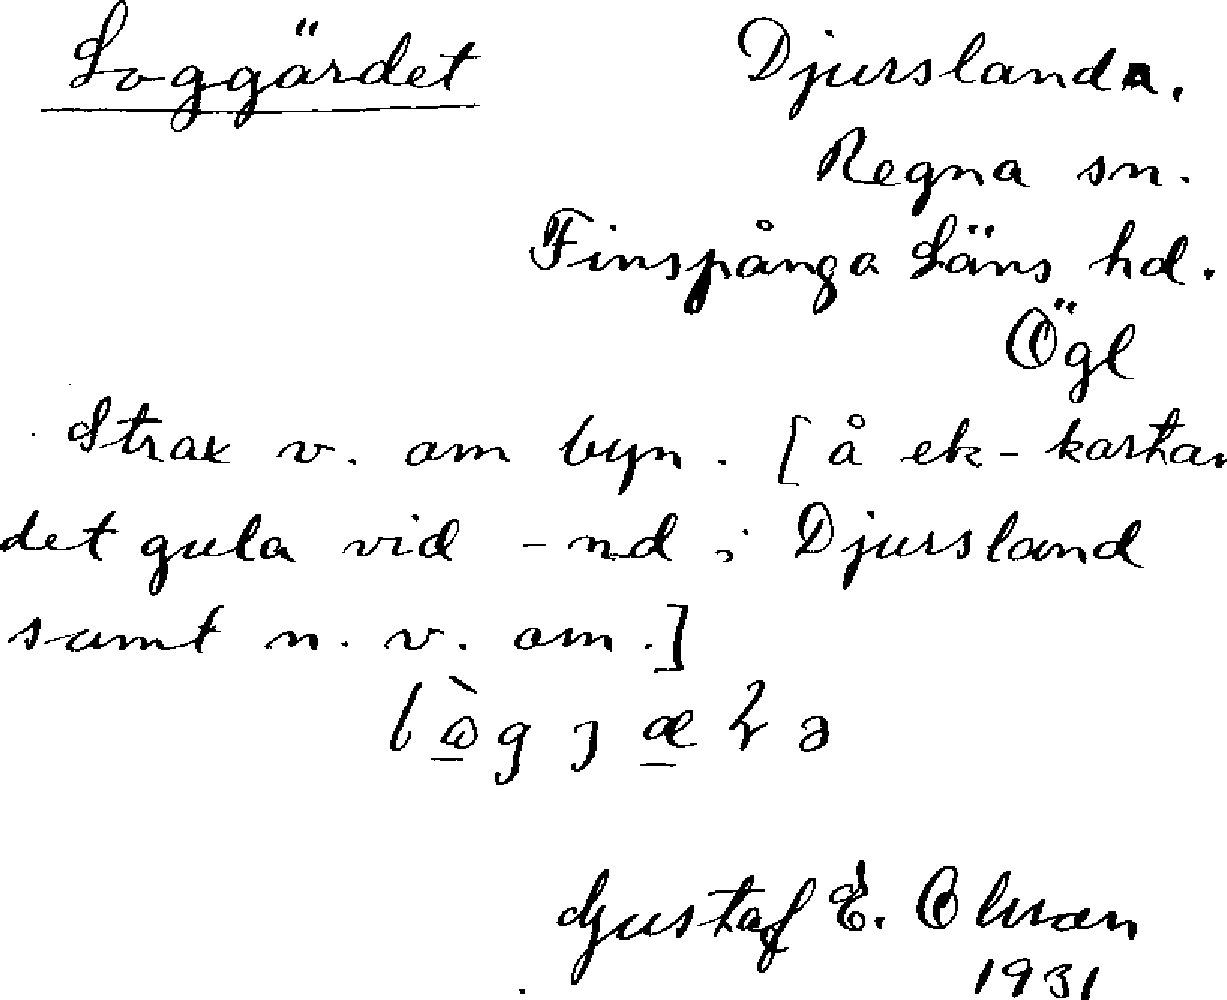 Loggärdet Djursland.
Regna sn.
Finspånga Läns hd.
Ögl
Strax v. om byn. [å ek-kartan
det gula vid -nd i Djursland
samt n. v. om.]
Gustaf E. Olsson
1931